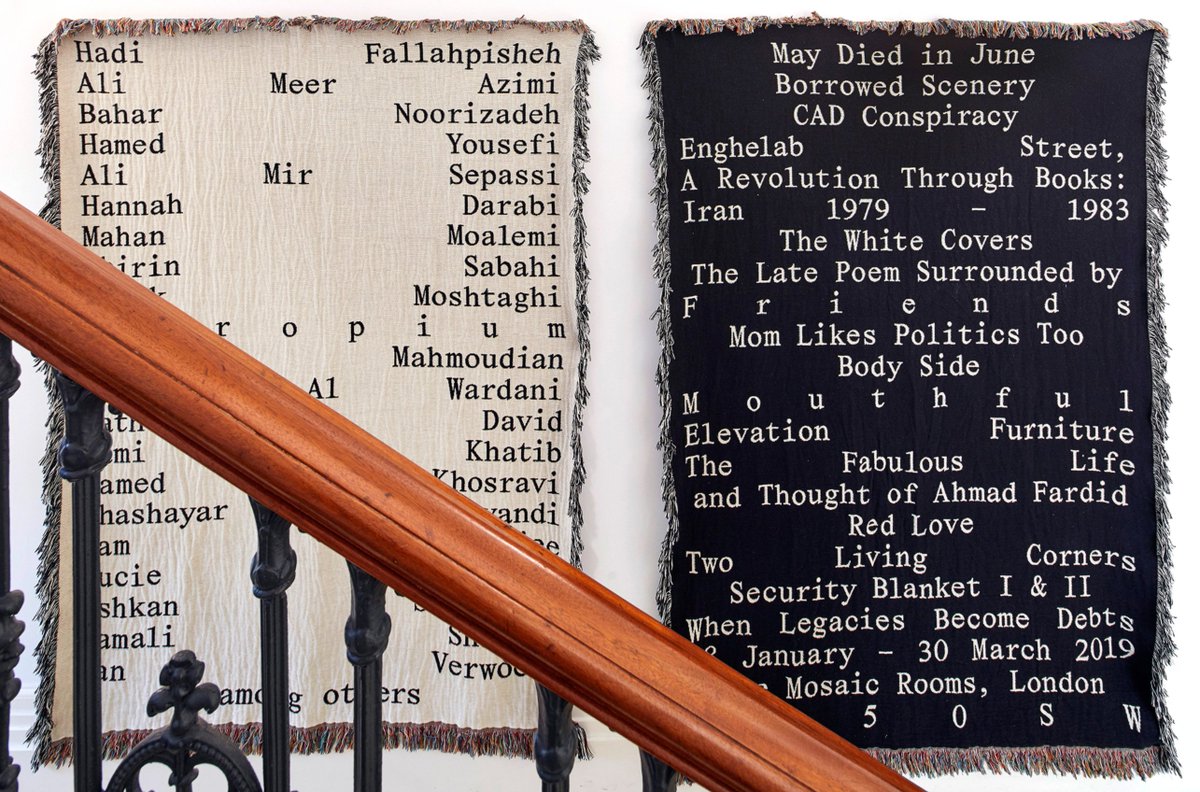 Hadi Fallahpisheh
Ali Meer Azimi
Bahar Noorizadeh
Hamed Yousefi
Ali Mir Sepassi
Hannah Darabi
Mahan Moalemi
Sabahi
Moshtaghi
r o p i u m
Mahmoudian
Al Wardani
David
Khatib
Khosravi
among others
May Died in June
Borrowed Scenery
CAD Conspiracy
Enghelab Street,
A Revolution Through Books:
Iran 1979 – 1983
The White Covers
The Late Poem Surrounded by
F r i e n d s
Mom Likes Politics Too
Body Side
M o u t h f u l
Elevation Furniture
The Fabulous Life
and Thought of Ahmad Fardid
Red Love
Two Living Corners
Security Blanket I & II
When Legacies Become Debts
January – 30 March 2019
Mosaic Rooms, London
5 0 S W